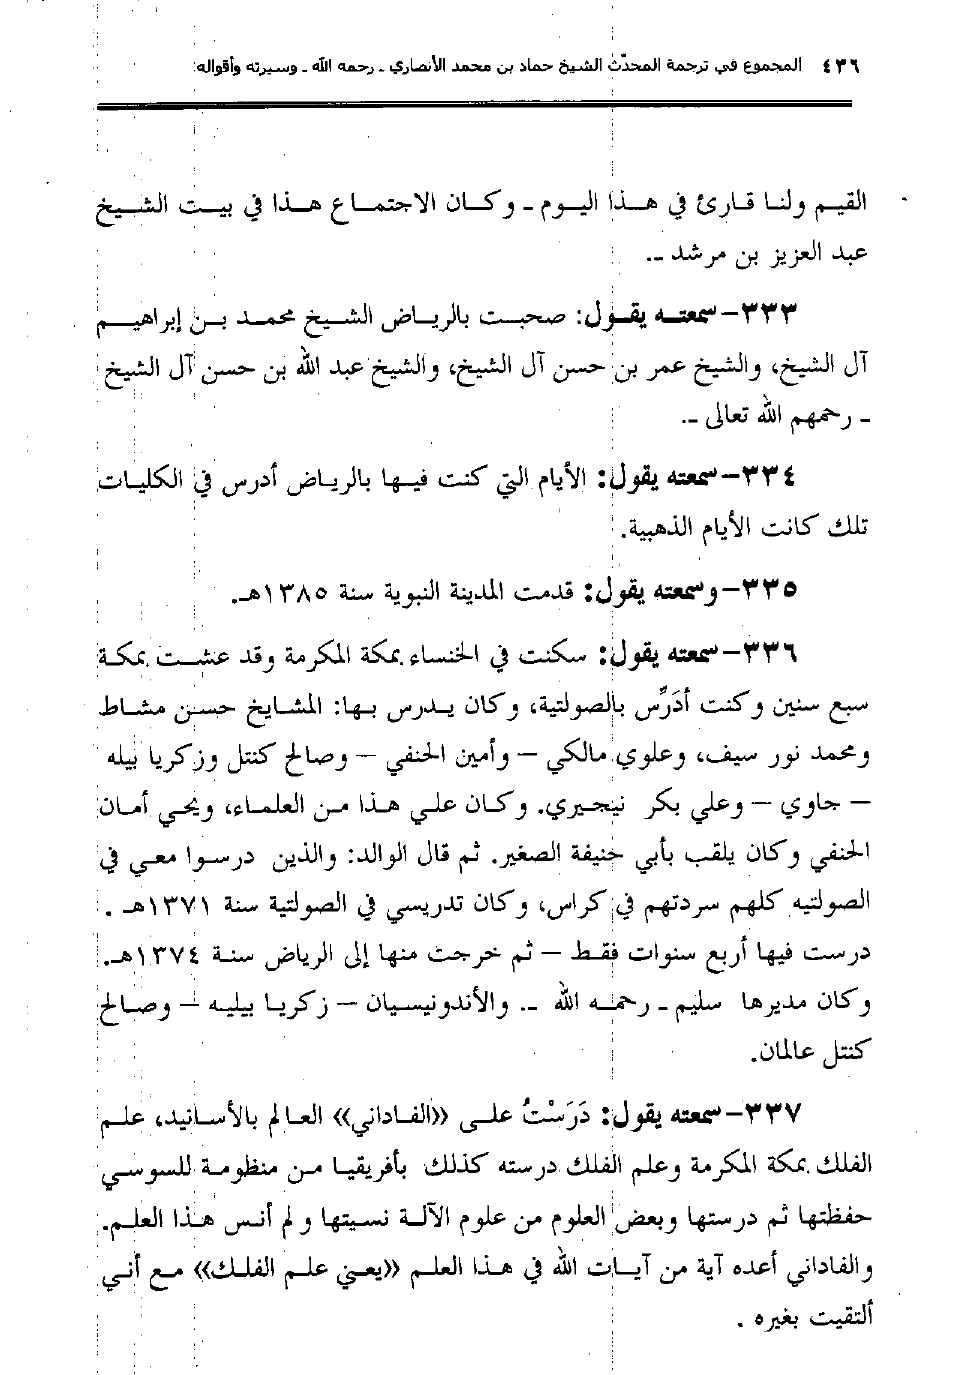 ٤٣٦ المجموع في ترجمة المحدّث الشيخ حماد بن محمد الأنصاري ـ رحمه الله ـ وسيرته وأقواله
القيم ولنا قارئ في هذا اليوم ـ وكان الاجتماع هذا في بيت الشيخ
عبد العزيز بن مرشد ـ.
٣٣٣– سمعته يقول: صحبت بالرياض الشيخ محمد بن إبراهيم
آل الشيخ، والشيخ عمر بن حسن آل الشيخ، والشيخ عبد الله بن حسن آل الشيخ
ـ رحمهم الله تعالى ـ.
٣٣٤– سمعته يقول: الأيام التي كنت فيها بالرياض أدرس في الكليات
تلك كانت الأيام الذهبية.
٣٣٥– وسمعته يقول: قدمت المدينة النبوية سنة ١٣٨٥هـ.
٣٣٦– سمعته يقول: سكنت في الخنساء بمكة المكرمة وقد عشت بمكة
سبع سنين وكنت أدَرِّس بالصولتية، وكان يدرس بها: المشايخ حسن مشاط
ومحمد نور سيف، وعلوي مالكي – وأمين الحنفي – وصالح كنتل وزكريا بيله
– جاوي – وعلي بكر نيجيري. وكان علي هذا من العلماء، ويحي أمان
الحنفي وكان يلقب بأبي حنيفة الصغير. ثم قال الوالد: والذين درسوا معي في
الصولتيه كلهم سردتهم في كراس، وكان تدريسي في الصولتية سنة ١٣٧١هـ .
درست فيها أربع سنوات فقط – ثم خرجت منها إلى الرياض سنة ١٣٧٤هـ.
وكان مديرها سليم ـ رحمه الله ـ. والأندونيسيان – زكريا بيليه – وصالح
كنتل عالمان.
٣٣٧– سمعته يقول: دَرَسْتُ على ((الفاداني)) العالم بالأسانيد، علم
الفلك بمكة المكرمة وعلم الفلك درسته كذلك بأفريقيا من منظومة للسوسي
حفظتها ثم درستها وبعض العلوم من علوم الآلة نسيتها ولم أنس هذا العلم.
والفاداني أعده آية من آيات الله في هذا العلم ((يعني علم الفلك)) مع أني
ألتقيت بغيره .